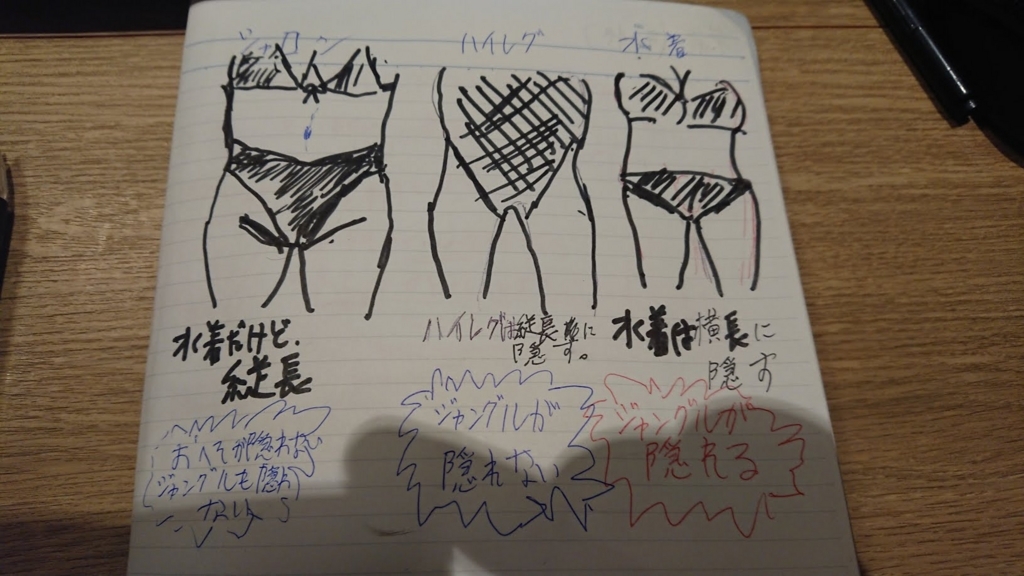 シャロン
ハイレグ
水着
水着だけど、
縦長
ハイレグは縦長に
隠す。
水着は横長に
隠す
おへそが隠れない
ジャングルも隠れ
ない
ジャングルが
隠れない
ジャングルが
隠れる